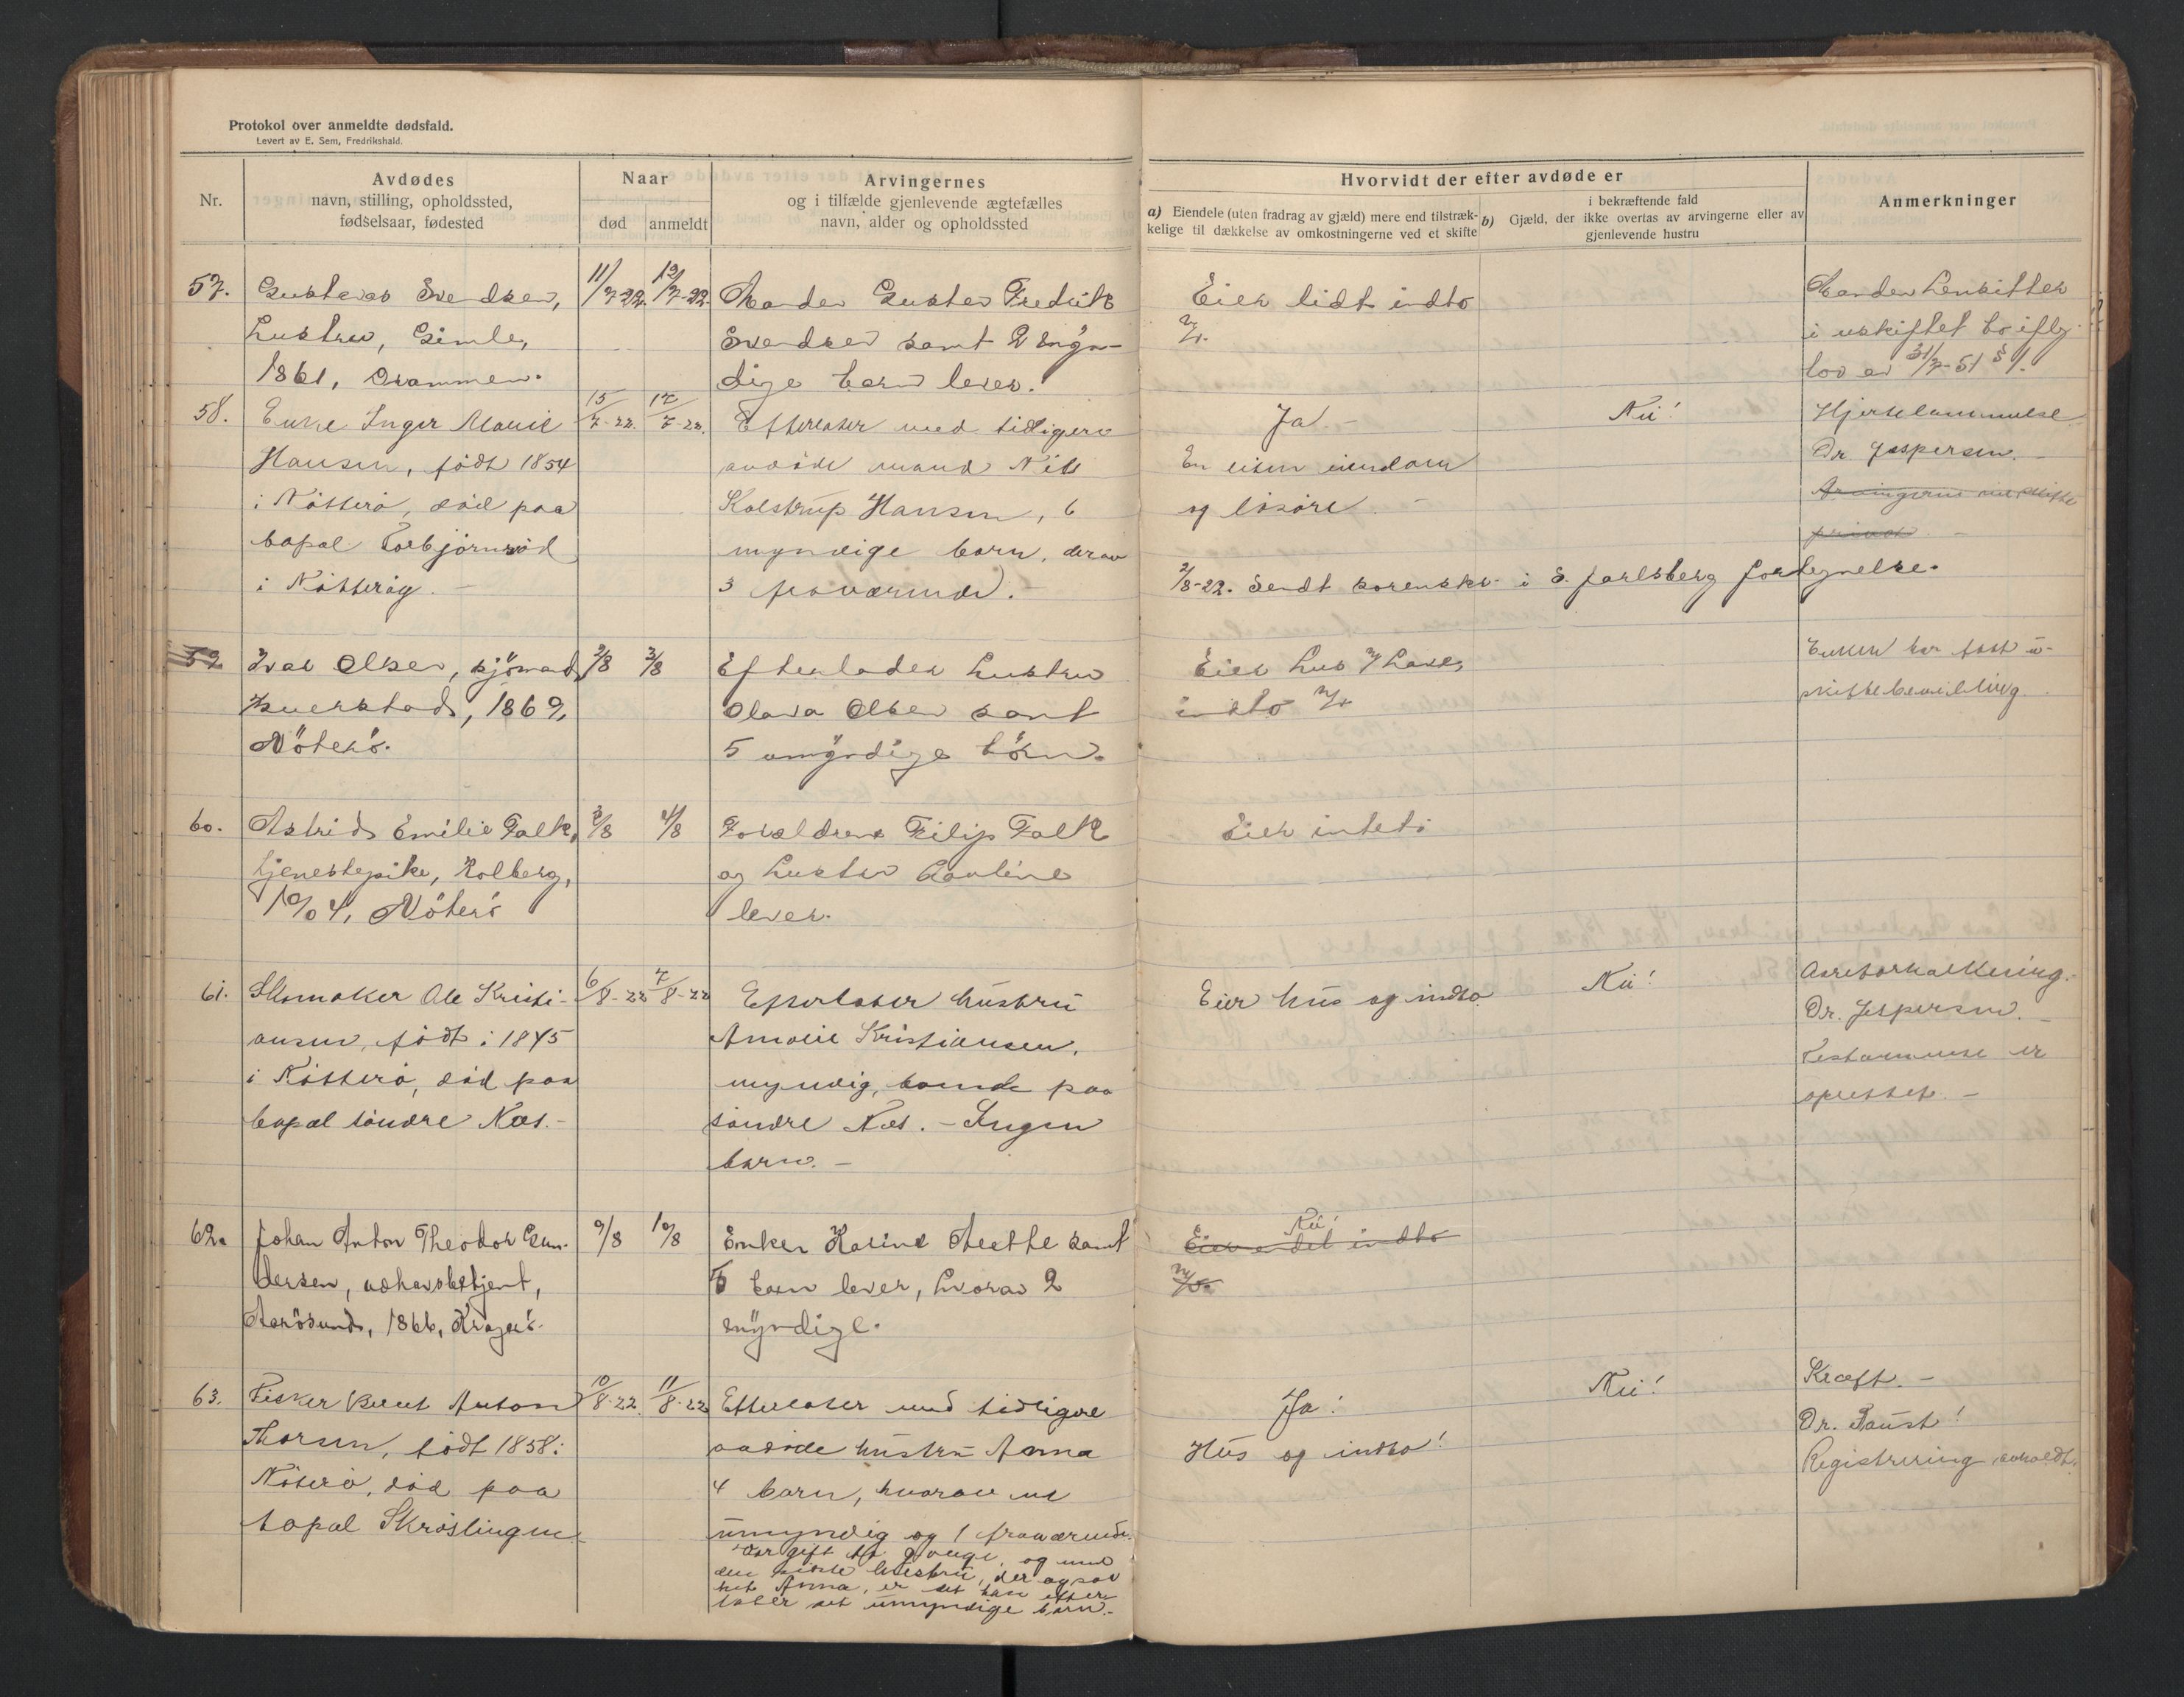 Protokol over anmeldte dødsfald.
Levert av E. Sem, Fredrikshald.
Nr.
Avdødes
navn, stilling, opholdssted,
fødselsaar, fødested
Naar
død
anmeldt
Arvingernes
og i tilfælde gjenlevende ægtefælles
navn, alder og opholdssted
Hvorvidt der efter avdøde er
a) Eiendele (uten fradrag av gjæld) mere end tilstræk-
kelige til dækkelse av omkostningerne ved et skifte
i bekræftende fald
b) Gjæld, der ikke overtas av arvingerne eller av
gjenlevende hustru
Anmerkninger
57.
Svendsen,
hustru, Gimle,
1861, Drammen.
11/7-22.
12/7-22.
Manden Gustav Fredrik
Svendsen samt 2 myn-
dige barn lever.
Eier lidt indbo
Manden hensitter
i uskiftet bo iflg.
lov av 31/7-51 § 1.
58.
Enke Inger Marie
Hansen, født 1854
i Nötterö, död paa
bopæl Torbjörnröd
i Nötteröy. -
15/7-22.
17/7-22.
Efterlater med tidligere
avdöde mand Nils
Kolstrup Hansen, 6
myndige barn, derav
3 fraværende. -
Ja. -
En liten eiendom
og lösöre. -
Nei!
Hjertelammelse
Dr. Jespersen. -
Arvingerne vil skifte
privat. -
2/8-22. Sendt sorenskr. i S. Jarlsberg fortegnelse.
59.
Ivar Olsen, sjömand,
1869,
Nöterö.
2/8
3/8
Efterlader hustru
Olava Olsen samt
5 umyndige börn.
Eier hus m/ have,
indbo m/v
Enken har faat u-
skiftebevilling.
60.
Astrid Emilie Falk,
tjenestepike, Kolberg,
1904, Nöterö
3/8
4/8
Forældrene Filip Falk
og hustru Pauline
lever.
Eier intet.
61.
Skomaker Ole Kristi-
ansen, födt i 1845
i Nötterö, död paa
bopæl söndre Næs. -
6/8-22
7/8-22
Efterlater hustru
Amalie Kristiansen,
myndig, boende paa
söndre Næs. - Ingen
barn. -
Eier hus og indbo.
Nei!
Aareforkalkning. -
Dr. Jespersen. -
Testamente er
oprettet. -
62.
Johan Anton Theodor Gun-
dersen, udhavsbetjent,
Aarösund, 1866, Kragerö.
9/8
10/8
Enken Karine samt
5 barn lever, hvorav 2
myndige.
Nei!
Eier endel indbo
m/v.
63.
Fisker Bernt Anton
Thorsen, født 1858 i
Nöterö, död paa
bopæl Skröslingen.
10/8-22.
11/8-22
Efterlater med tidligere
avdöde hustru Anna
4 barn, hvorav en
umyndig og 1 fraværende.
Var gift to gange, og med
den sidste hustru, der ogsaa
het Anna, er det han efter-
later det umyndige barn. -
Ja!
Hus og indbo!
Nei!
Kræft. -
Dr. Faust!
Registrering avholdt.